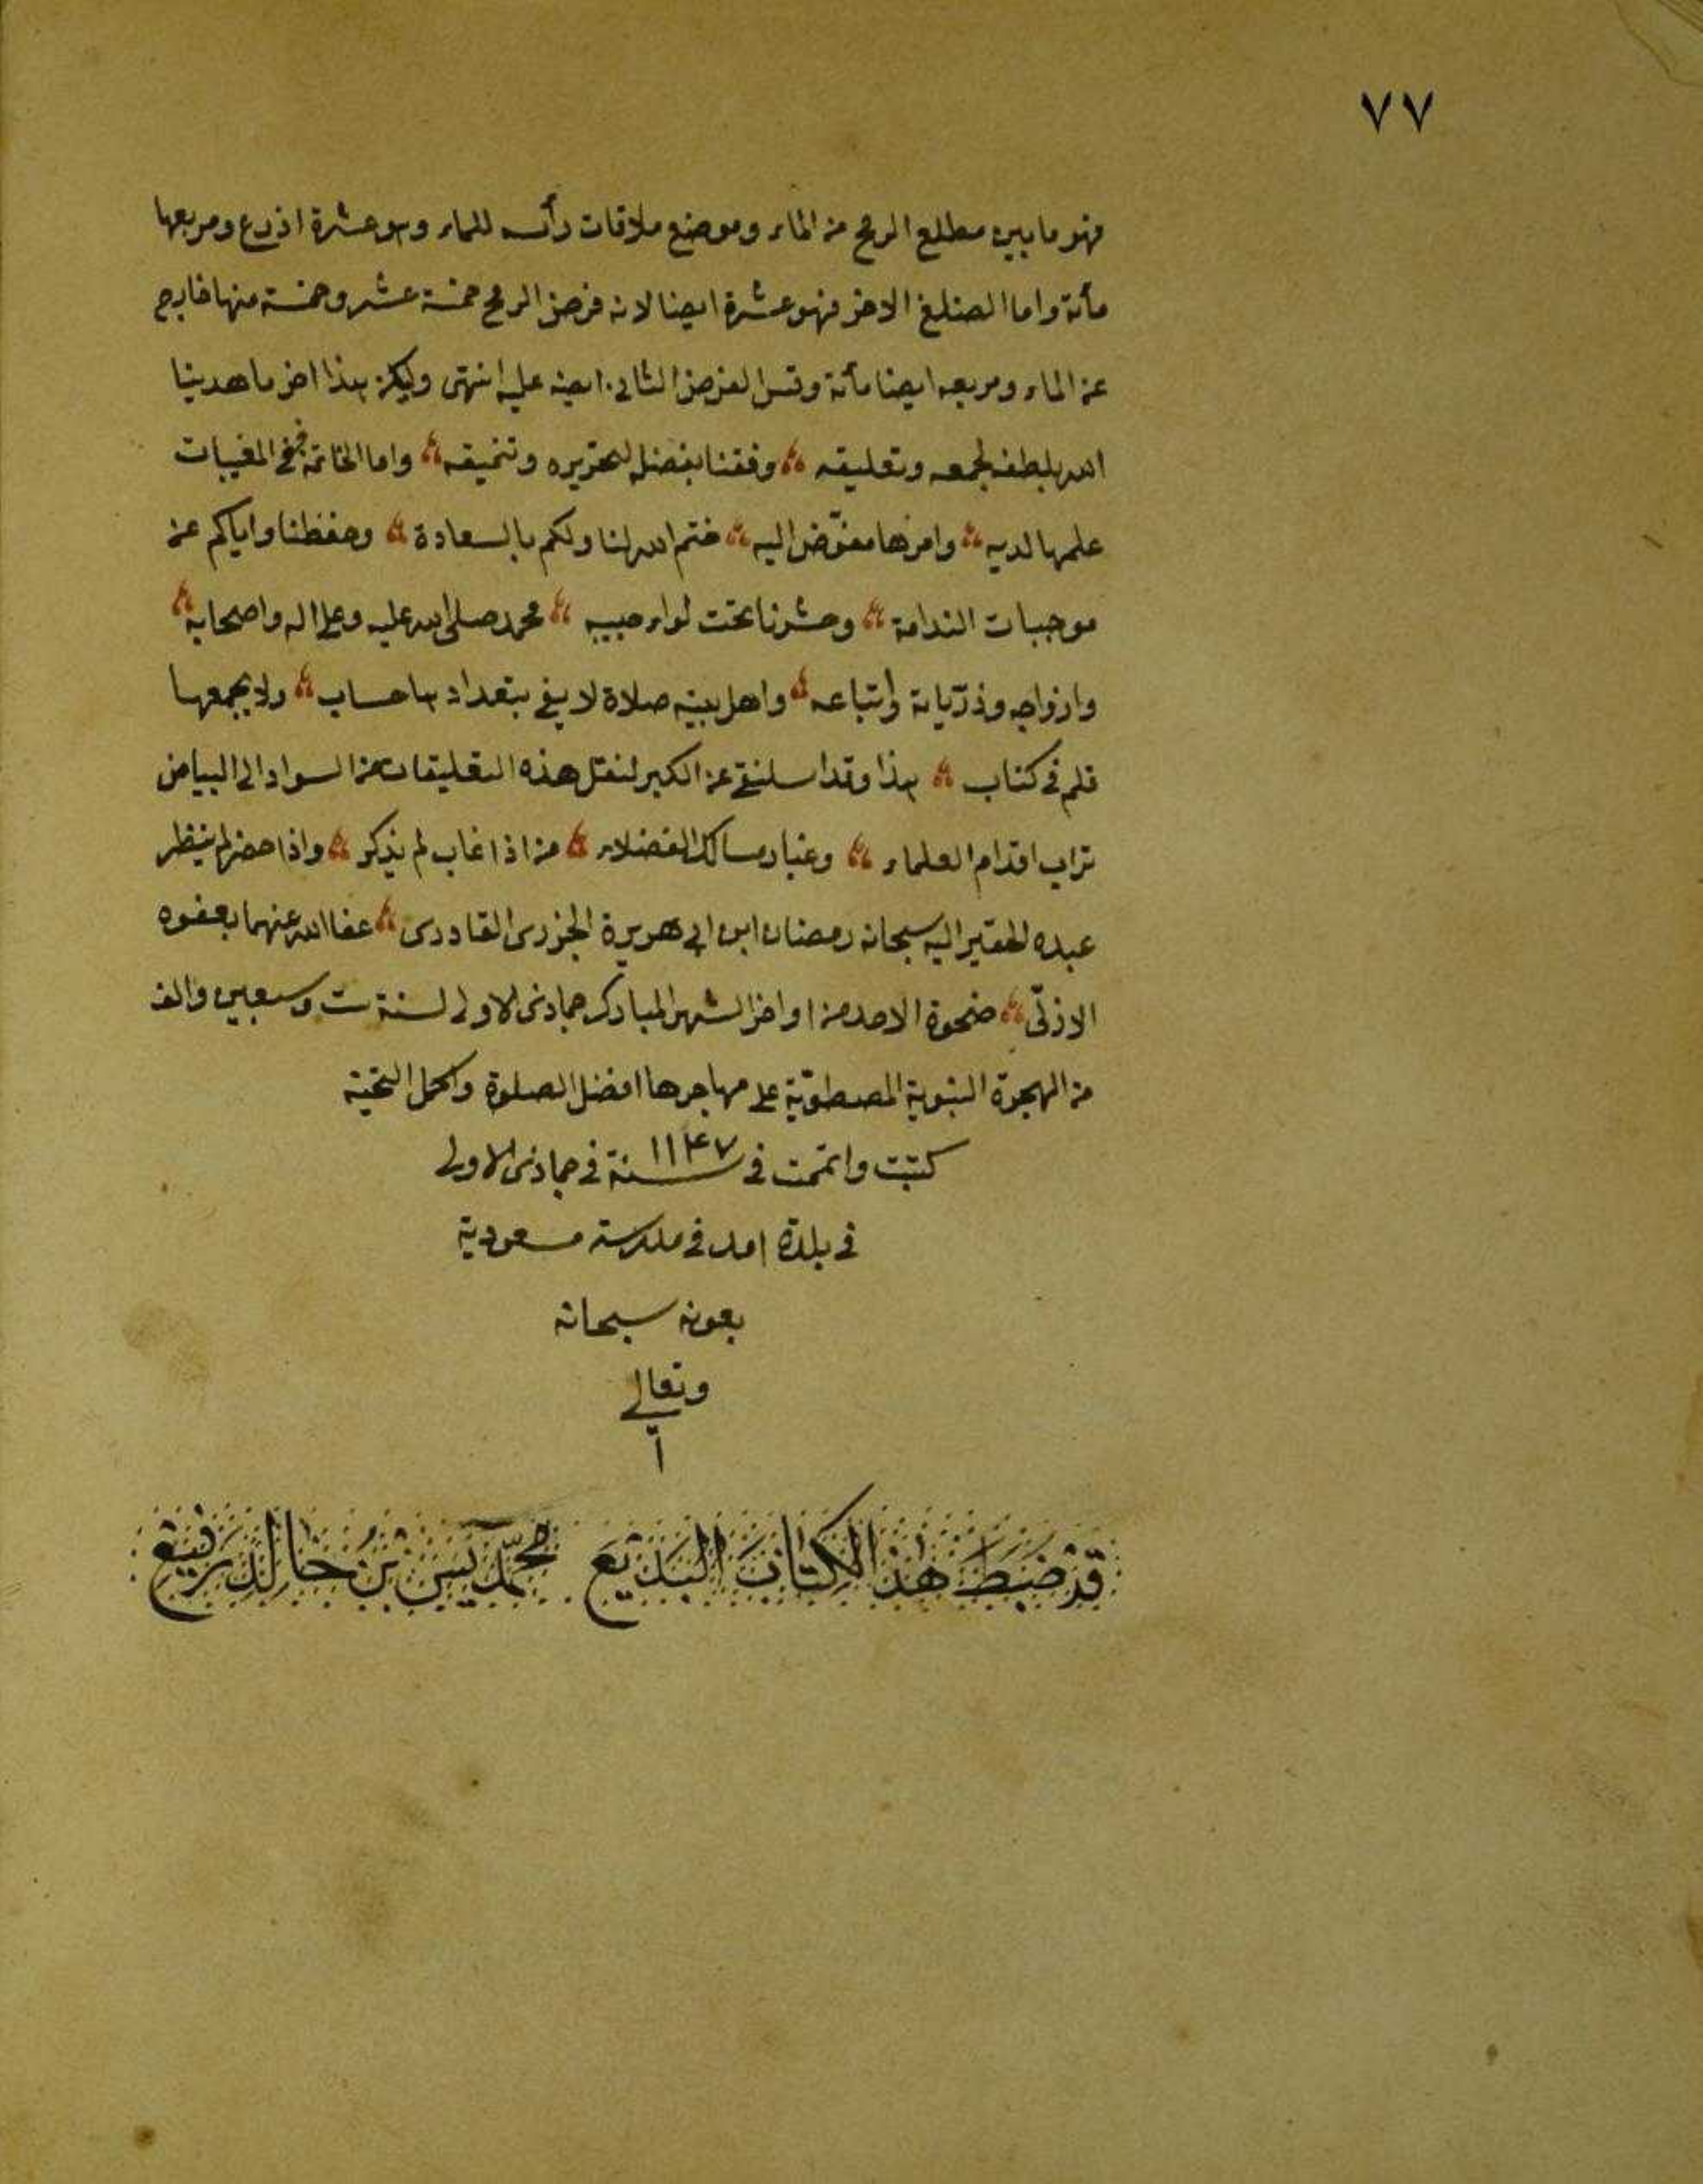 ٧٧
فهو ما بين مطلع الرمح من الماء وموضع ملاقات رأسه للماء وهو عشرة اذرع ومربعها
مأة واما الضلع الاخر فهو عشرة ايضا لانه فرض الرمح خمسة عشر وخمسة منها خارج
عن الماء ومربعه ايضا مأة وقس الفرض الثاني ايضه عليه انتهى وليكن هذا اخر ما هدينا
الله بلطفه لجمعه وتعليقه وفقنا بفضله لتحريره وتنميقه واما الخاتمة ففي المغيبات
علمها لديه وامرها مفوّض اليه ختم الله لنا ولكم بالسعادة وحفظنا واياكم عن
موجبات الندامة وحشرنا تحت لواء حبيبه محمد صلى الله عليه وعلى اله واصحابه
وازواجه وذرّياته وأتباعه واهل بيته صلاة لا يفي بتعدادها حساب ولا يجمعها
قلم في كتاب هذا وقد عن الكبير لنقل هذه التعليقات من السواد الى البياض
تراب اقدام العلماء وغبار مسالك الفضلاء من اذا غاب لم يذكر واذا حضر لم ينظر
عبده الحقير اليه سبحانه رمضان ابن ابي هريرة الجزرى القادرى عفا الله عنهما بعفوه
الازلىّ ضحوة الاحد من اواخر الشهر المبارك جمادى الاولى لسنة ست وسبعين والف
من الهجرة النبوية المصطفويّة على مهاجرها افضل الصلوة واكمل التحية
كتبت واتممت في سنة ١١٤٧ في جمادى الاولى
في بلدة امد في مدرسة مسعودية
بعونه سبحانه
وتعالى
آ
قَدْ ضَبَطَ هٰذَا الْكِتَابَ الْبَدِيْعَ مُحَمَّدْ يٰسٓ بْنُ خَالِدْ رَفِيْعْ